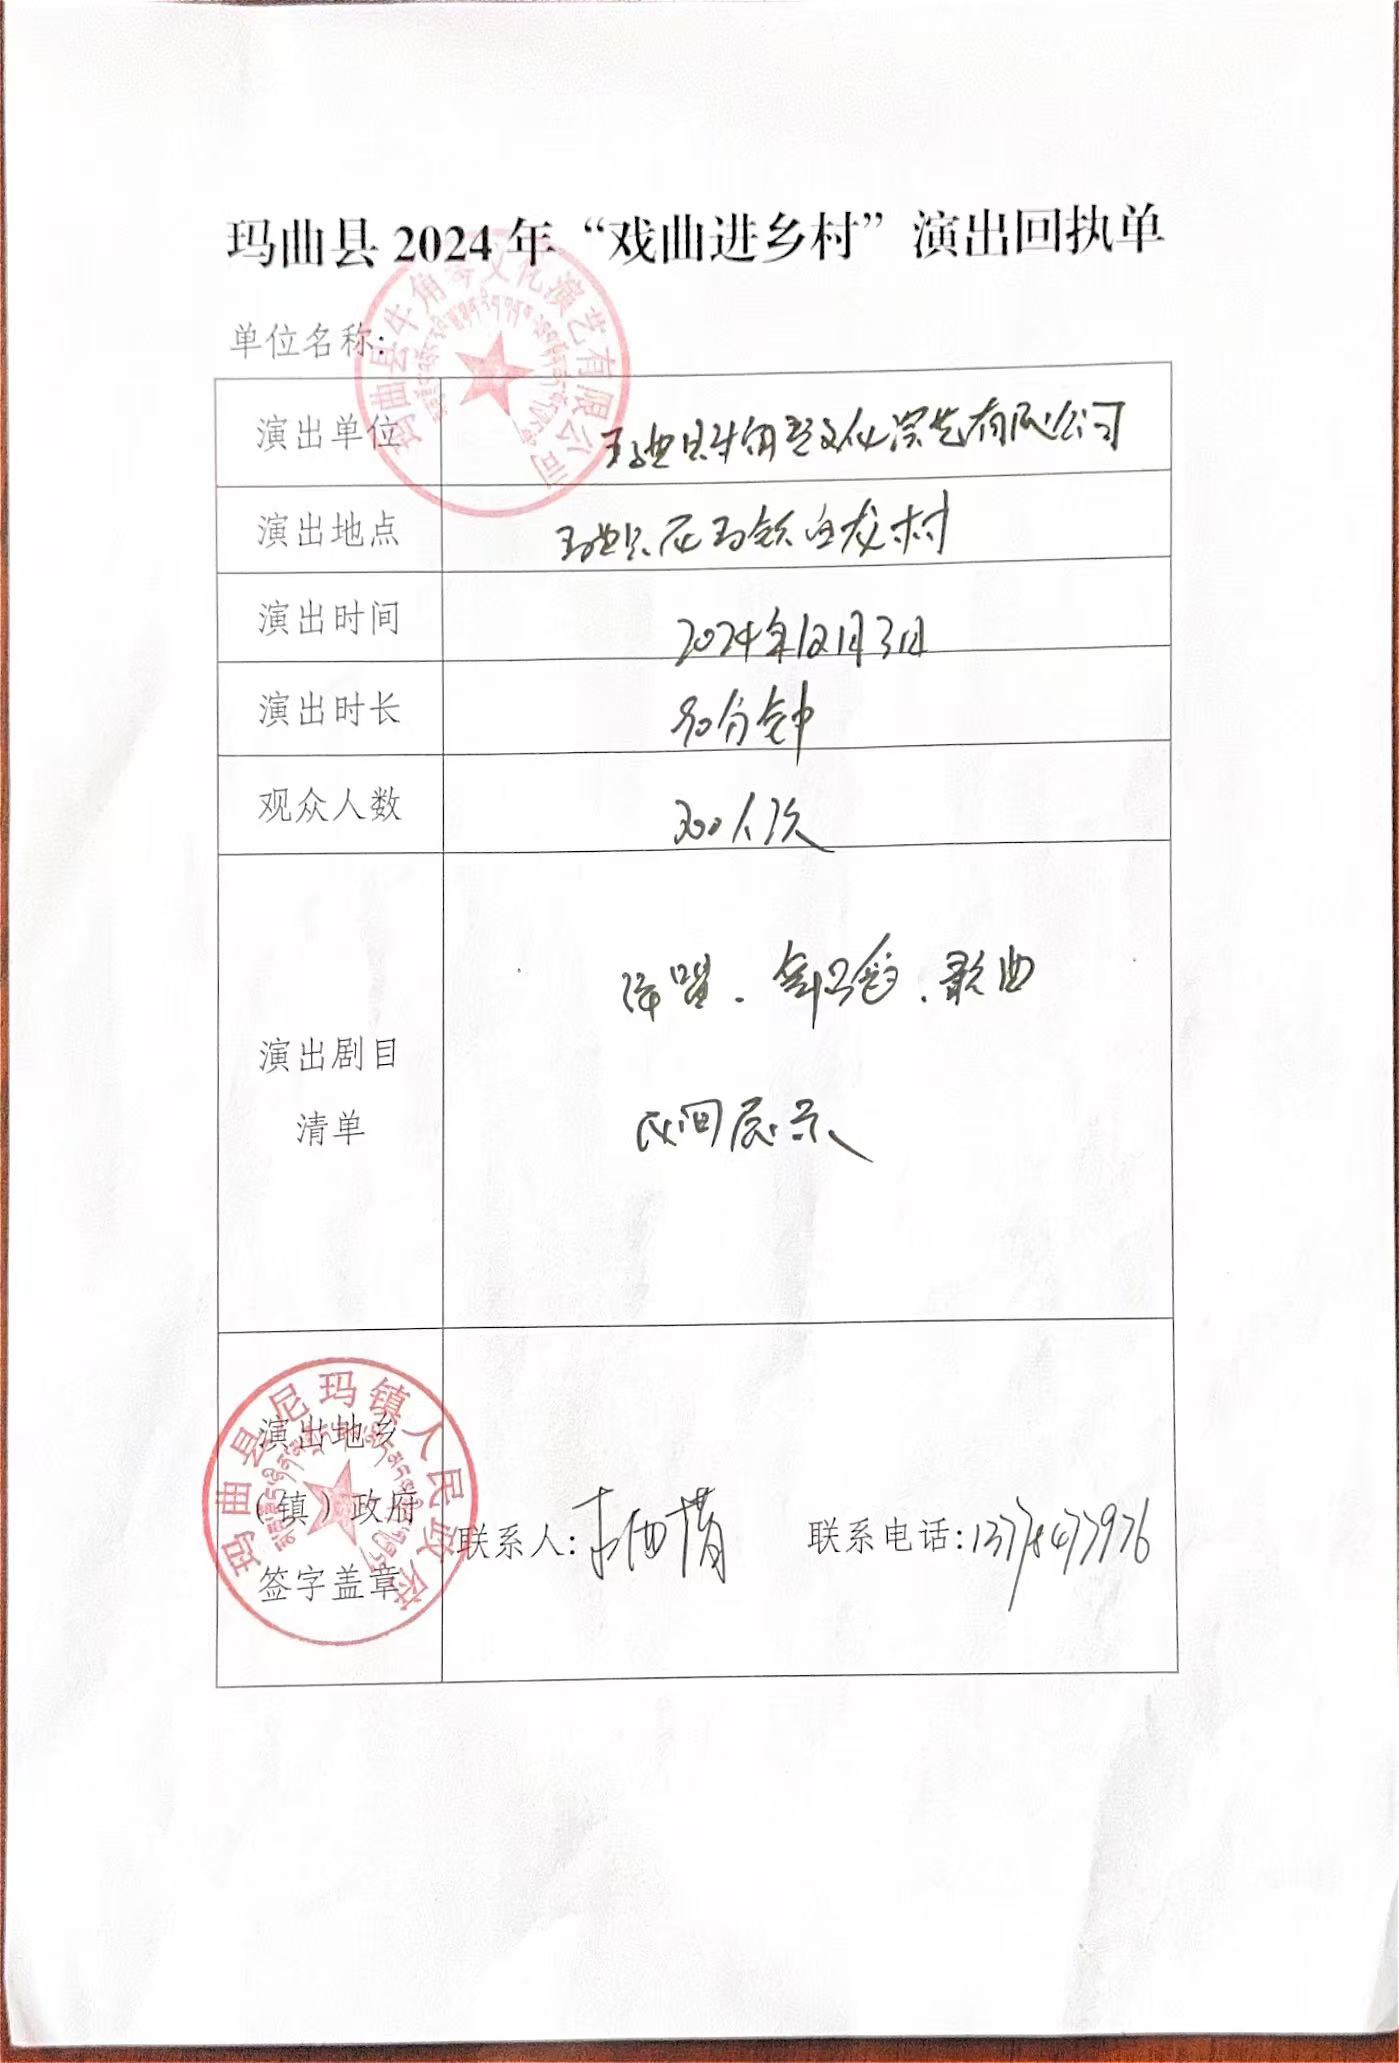 玛曲县 2024 年“戏曲进乡村”演出回执单
单位名称:
玛曲县牛角琴文化演艺有限公司
演出单位
玛曲县牛角琴文化演艺有限公司
演出地点
玛曲县尼玛镇 村
演出时间
2024年12月3日
演出时长
90分钟
观众人数
300人次
演出剧目
清单
弹唱、 、歌曲
民间展示
演出地乡
(镇)政府
签字盖章
玛曲县尼玛镇人民政府
联系人:
联系电话: